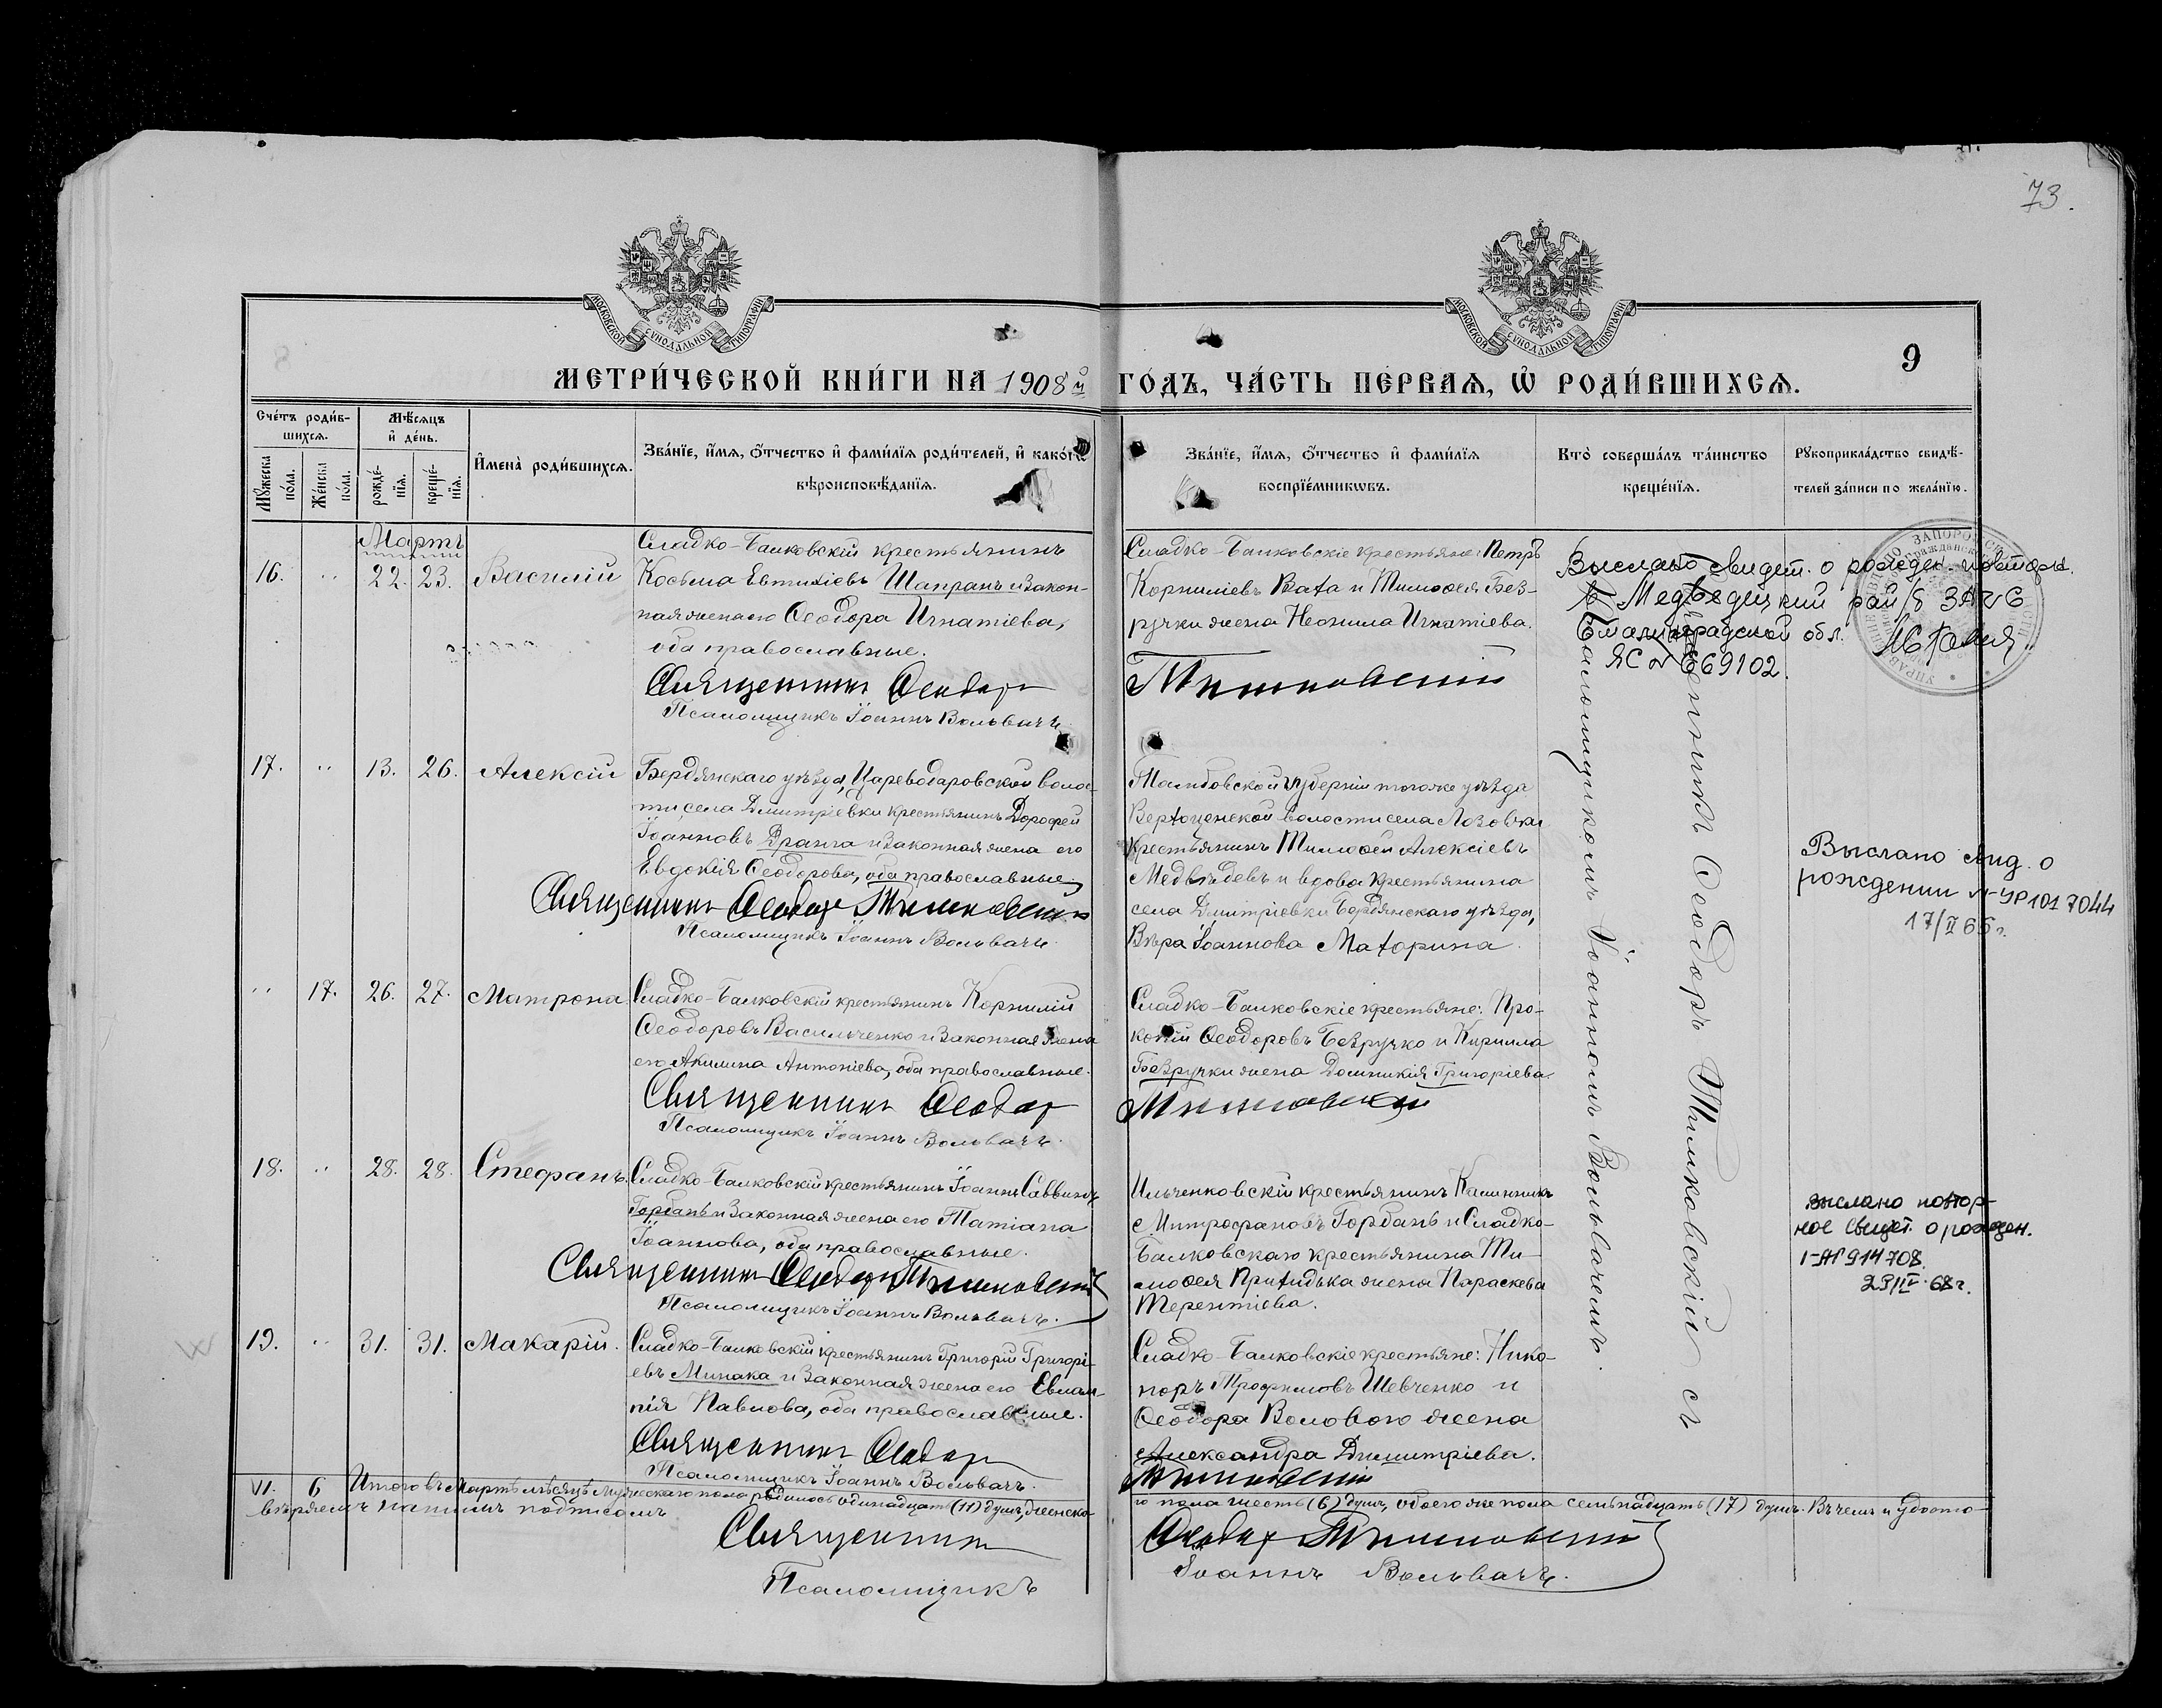 73.
МОСКОВСКОЙ СѴНОДАЛЬНОЙ ТИПОГРАФІИ
МОСКОВСКОЙ СѴНОДАЛЬНОЙ ТИПОГРАФІИ
9
МЕТРИ́ЧЕСКОЙ КНИ́ГИ НА 1908й ГО́ДЪ, ЧА́СТЬ ПЕ́РВАЯ, Ѡ҆ РОДИ́ВШИХСЯ.
Сче́тъ роди́в-
шихся.
Мѣ́сяцъ
и҆ де́нь.
Мꙋ́жеска
по́ла.
Же́нска
по́ла.
рожде́-
нїя.
креще́-
нїя.
И҆мена̀ роди́вшихся.
Зва́нїе, и҆́мя, ѻ҆́тчество и҆ фами́лїя роди́телей, и҆ како́гѡ
вѣроисповѣ́данїя.
Зва́нїе, и҆́мя, ѻ҆́тчество и҆ фами́лїя
воспрїе́мникѡвъ.
Кто̀ соверша́лъ та́инство
креще́нїя.
Рꙋкоприкла́дство свидѣ́-
телей за́писи по жела́нїю.
Мартъ
16. " 22. 23. Василій
Сладко-Балковскій крестьянинъ
Косьма Евтихіевъ Шапранъ и закон-
ная жена его Ѳеодора Игнатіева,
оба православные.
Священникъ Ѳеодоръ
Псаломщикъ Іоаннъ Вольвачъ.
Сладко-Балковскіе крестьяне: Петръ
Корниліевъ Ваха и Тимоѳея Без-
ручки жена Неонила Игнатіева.
Тимковскій
Выслано свидет. о рожден. повторн.
в Медведицкий рай/б ЗАГС
Сталинградской обл.
ЯС № 669102.
17. " 13. 26. Алексій
Бердянскаго уѣзда, Цареводаровской волос-
ти села Дмитріевки крестьянинъ Дорофей
Іоанновъ Дранга и законная жена его
Евдокія Ѳеодорова, оба православные.
Священникъ Ѳеодоръ Тимковскій
Псаломщикъ Іоаннъ Вольвачъ.
Тамбовской губерніи того же уѣзда
Верхоценской волости села Лозовки
крестьянинъ Тимоѳей Алексіевъ
Медвѣдевъ и вдова крестьянина
села Дмитріевки Бердянскаго уѣзда,
Вѣра Іоаннова Махорина.
Выслано свид. о
рождении № УР 101 7044
17/II 65 г.
" 17. 26. 27. Матрона
Сладко-Балковскій крестьянинъ Корнилій
Ѳеодоровъ Васильченко и законная жена
его Акилина Антоніева, оба православные.
Священникъ Ѳеодоръ
Псаломщикъ Іоаннъ Вольвачъ.
Сладко-Балковскіе крестьяне: Про-
копій Ѳеодоровъ Безручко и Кирилла
Безручки жена Домникія Григоріева.
Тимковскій
18. " 28. 28. Стефанъ.
Сладко-Балковскій крестьянинъ Іоаннъ Саввинъ
Горбань и законная жена его Татіана
Іоаннова, оба православные.
Священникъ Ѳеодоръ Тимковскій
Псаломщикъ Іоаннъ Вольвачъ.
Ильченковскій крестьянинъ Каллиникъ
Митрофановъ Горбань и Сладко-
Балковскаго крестьянина Ти-
моѳея Прихидька жена Параскева
Терентіева.
выслано повтор-
ное свидет. о рожден.
I-АП 914708.
19. " 31. 31. Макарій.
Сладко-Балковскій крестьянинъ Григорій Григорі-
евъ Минака и законная жена его Евлам-
пія Павлова, оба православные.
Священникъ Ѳеодоръ
Псаломщикъ Іоаннъ Вольвачъ.
Сладко-Балковскіе крестьяне: Нико-
норъ Трофимовъ Шевченко и
Ѳеодора Волового жена
Александра Димитріева.
Тимковскій
Священникъ Ѳеодоръ Тимковскій съ
Псаломщикомъ Іоанномъ Вольвачемъ.
6 Итого въ Мартѣ мѣсяцѣ мужескаго пола родилось одинадцать (11) душъ, женска-
го пола шесть (6) душъ, обоего же пола семьнадцать (17) душъ. Въ чемъ и удосто-
вѣряемъ нашимъ подписомъ
Священникъ Ѳеодоръ Тимковскій
Псаломщикъ Іоаннъ Вольвачъ.